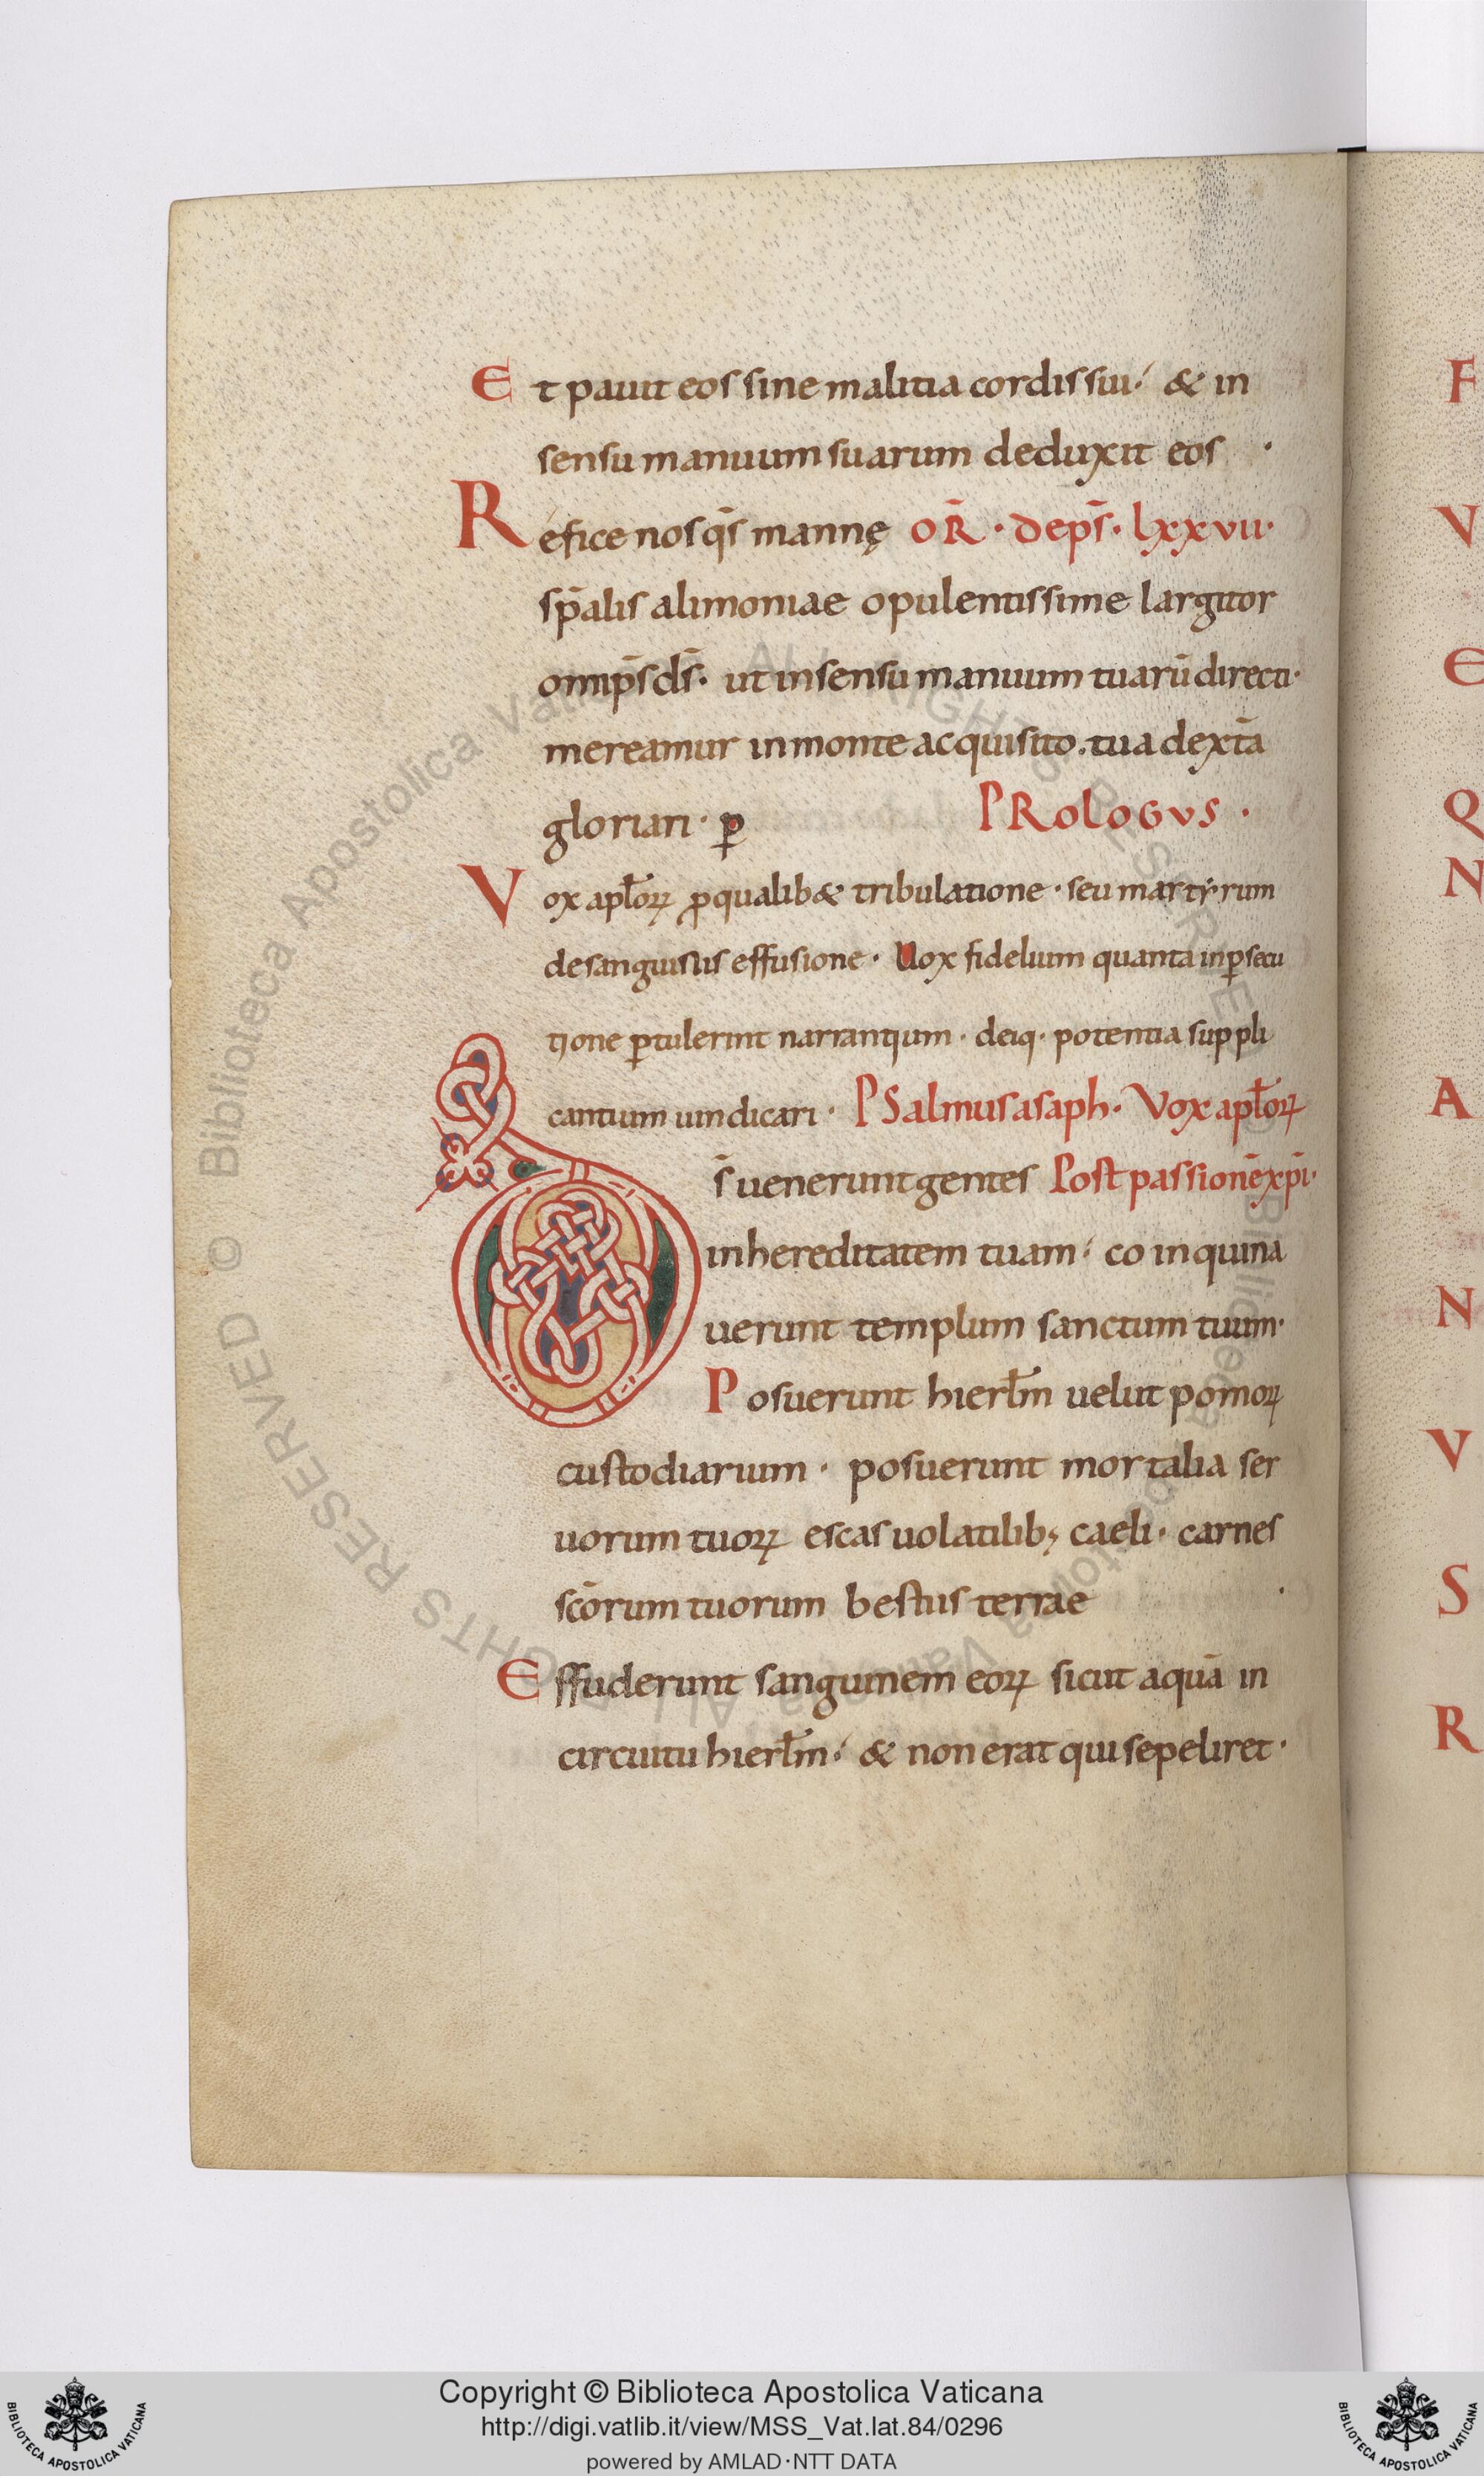 Et pauit eos sine malitia cordis sui· & in
sensu manuum suarum deduxit eos ·
Refice nos q̄s mannę OR̄ · de ps̄ · lxxvii·
sp̄alis alimoniae opulentissime largitor
omp̄s ds̄· ut in sensu manuum tuarū directi·
mereamur in monte acquisito. tua dext̄a
gloriari · p̲ PROLOGVS ·
Vox apl̄oꝝ ꝓ qualib& tribulatione · seu martyrum
de sanguisuis effusione · Uox fidelium quanta in ꝑsecu
tione ꝑtulerint narrantium · deiq· potentia suppli
cantium uindicari · PSalmus asaph· Vox apl̄oꝝ
Ds̄ uenerunt gentes Post passionē xp̄i·
in hereditatem tuam · coinquina
uerunt templum sanctum tuum·
Posuerunt hierl̄m uelut pomoꝝ
custodiarium · posuerunt mortalia ser
uorum tuoꝝ escas uolatilib; caeli · carnes
sc̄orum tuorum bestiis terrae ·
Effuderunt sanguinem eoꝝ sicut aquā in
circuitu hierl̄m· & non erat qui sepeliret·
F
V
E
Q
N
A
N
V
S
R
© Biblioteca Apostolica Vaticana ALL RIGHTS RESERVED
Copyright © Biblioteca Apostolica Vaticana
http://digi.vatlib.it/view/MSS_Vat.lat.84/0296
powered by AMLAD·NTT DATA
BIBLIOTECA APOSTOLICA VATICANA
BIBLIOTECA APOSTOLICA VATICANA